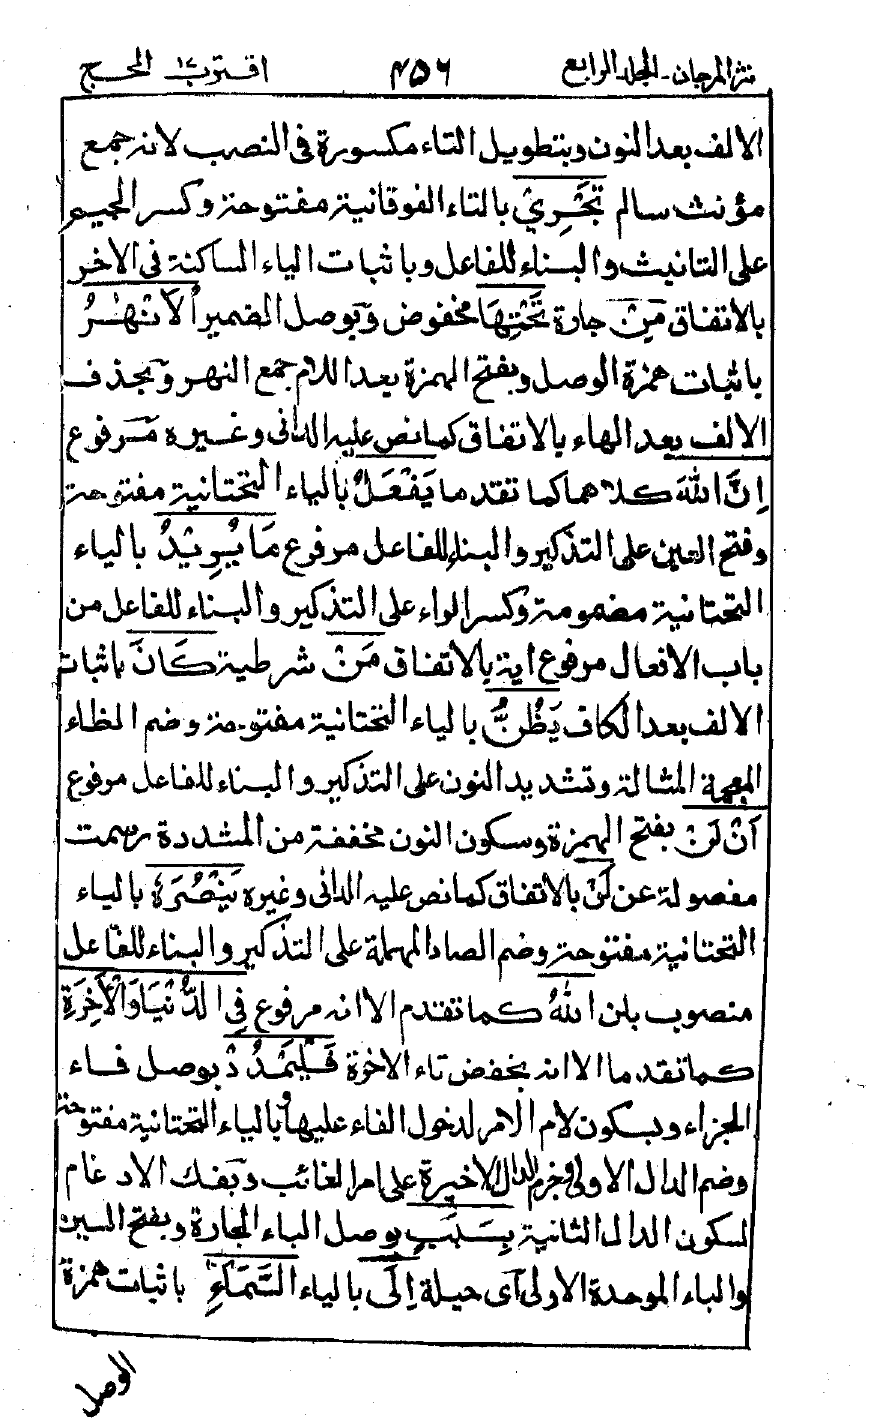 نثر المرجان - المجلد الرابع ٤٥٦ اقترب ١٧ الحج
الالف بعد النون وبتطويل التاء مكسورة فى النصب لانه جمع
مؤنث سالم تَجْرِيْ بالتاء الفوقانية مفتوحة وكسر الجيم
على التانيث والبناء للفاعل وباثبات الياء الساكنة فى الاخر
بالاتفاق مِنْ جارة تَحْتِهَا مخفوض وبوصل الضمير الْاَنْهٰرُ
باثبات همزة الوصل وبفتح الهمزة بعد اللام جمع النهر وبحذف
الالف بعد الهاء بالاتفاق كما نص عليه الدانى وغيره مرفوع
اِنَّ اللّٰهَ كلاهما كما تقدما يَفْعَلُ بالياء التحتانية مفتوحة
وفتح العين على التذكير والبناء للفاعل مرفوع مَا يُرِيْدُ بالياء
التحتانية مضمومة وكسر الراء على التذكير والبناء للفاعل من
باب الافعال مرفوع اية بالاتفاق مَنْ شرطية كَانَ باثبات
الالف بعد الكاف يَظُنُّ بالياء التحتانية مفتوحة وضم الظاء
المعجمة المشالة وتشديد النون على التذكير والبناء للفاعل مرفوع
اَنْ لَنْ بفتح الهمزة وسكون النون مخففة من المشددة رسمت
مفصولة عن لَنْ بالاتفاق كما نص عليه الدانى وغيره يَنْصُرَهُ بالياء
التحتانية مفتوحة وضم الصاد المهملة على التذكير والبناء للفاعل
منصوب بلن اللّٰهُ كما تقدم الا انه مرفوع فِى الدُّنْيَا وَالْاٰخِرَةِ
كما تقدما الا انه بخفض تاء الاخرة فَلْيَمْدُدْ بوصل فاء
الجزاء وبسكون لام الامر لدخول الفاء عليها وبالياء التحتانية مفتوحة
وضم الدال الاولى وجزم الدال الاخيرة على امر الغائب وبفك الادغام
لسكون الدال الثانية بِسَبَبٍ بوصل الباء الجارة وبفتح السين
والباء الموحدة الاولى اى حيلة اِلَى بالياء السَّمَاءِ باثبات همزة
الوصل